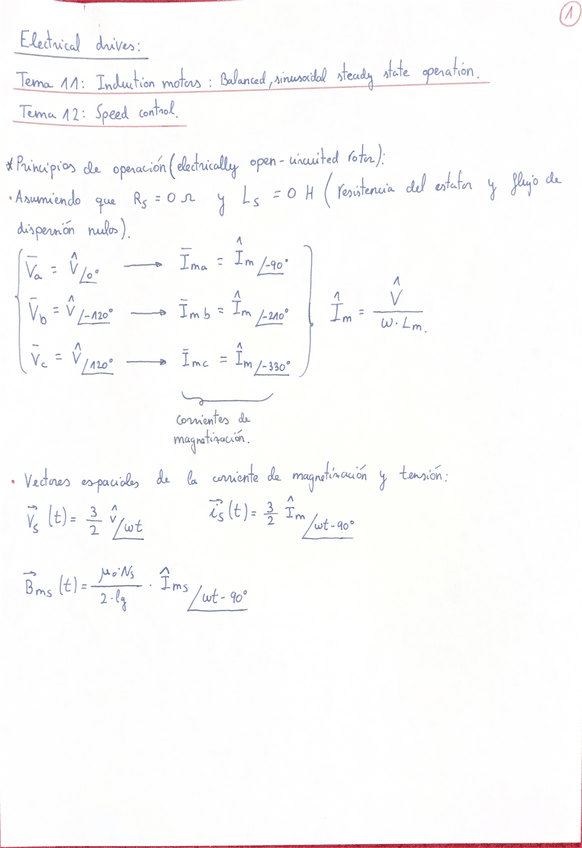 1
Electrical drives:
Tema 11: Induction motors: Balanced, sinusoidal steady state operation.
Tema 12: Speed control.
* Principios de operación (electrically open-circuited rotor):
· Asumiendo que Rs = 0 Ω y Ls = 0 H (resistencia del estator y flujo de
dispersión nulos).
V̄a = V̂ /0° → Īma = Îm /-90°
V̄b = V̂ /-120° → Īmb = Îm /-210°
V̄c = V̂ /120° → Īmc = Îm /-330°
Îm = V̂ / (ω·Lm.)
corrientes de
magnetización.
· Vectores espaciales de la corriente de magnetización y tensión:
V⃗s (t) = 3/2 V̂ /ωt    i⃗s (t) = 3/2 Îm /ωt-90°
B⃗ms (t) = (μo·Ns / 2·lg) · Îms /ωt-90°